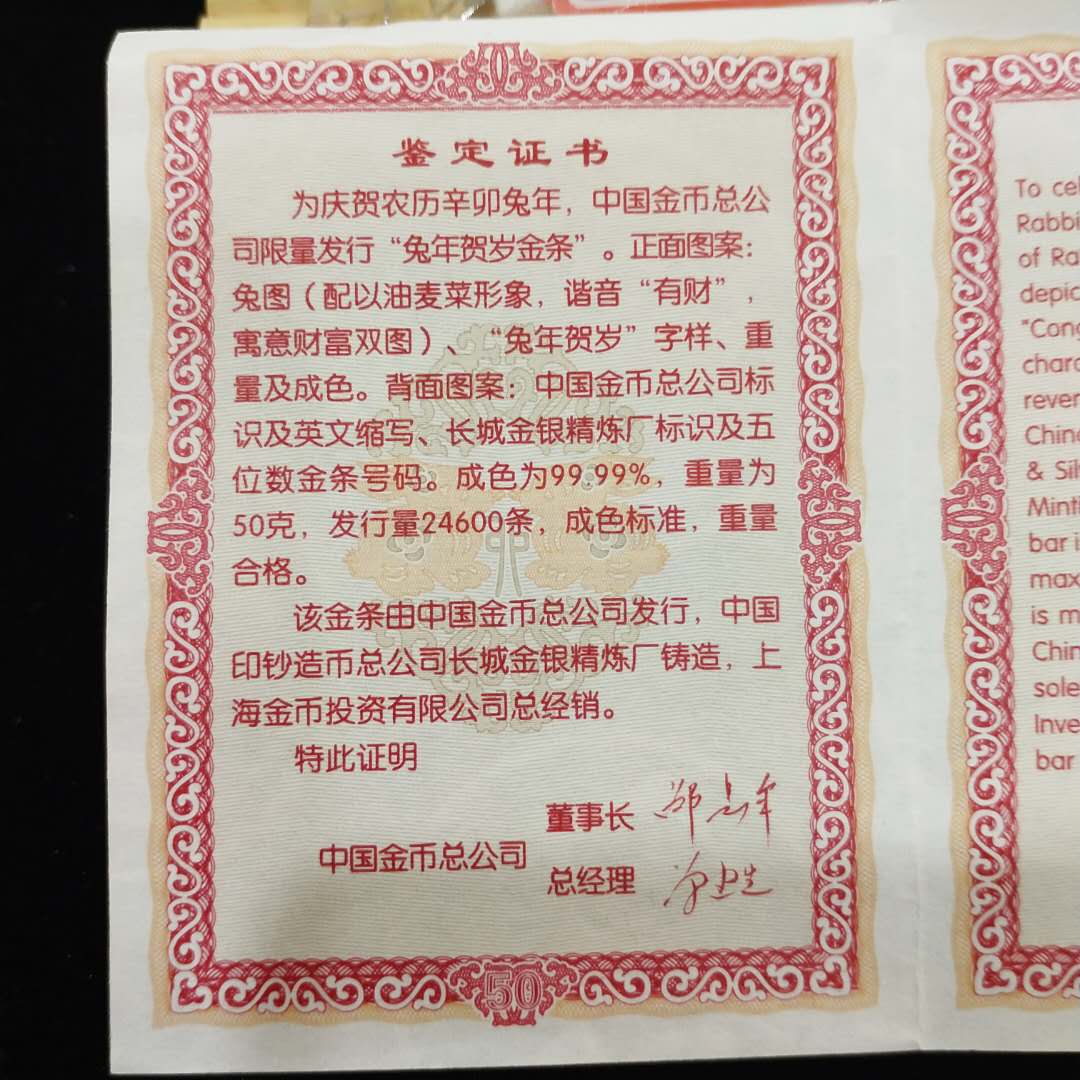 鉴定证书
为庆贺农历辛卯兔年，中国金币总公
司限量发行“兔年贺岁金条”。正面图案：
兔图（配以油麦菜形象，谐音“有财”，
寓意财富双图）、“兔年贺岁”字样、重
量及成色。背面图案：中国金币总公司标
识及英文缩写、长城金银精炼厂标识及五
位数金条号码。成色为99.99%，重量为
50克，发行量24600条，成色标准，重量
合格。
该金条由中国金币总公司发行，中国
印钞造币总公司长城金银精炼厂铸造，上
海金币投资有限公司总经销。
特此证明
董事长
中国金币总公司
总经理
50
To
Rabbi
of Ra
depic
"Cong
chara
rever
Chin
& Sil
Mint
bar i
max
is m
Chin
sole
Inve
bar